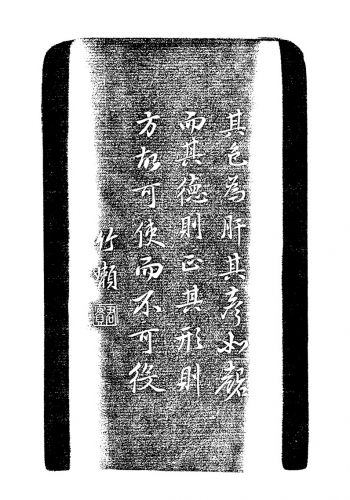 其色為肝其如
而其德則正其形則
方故可使而不可役
竹嬾
君實